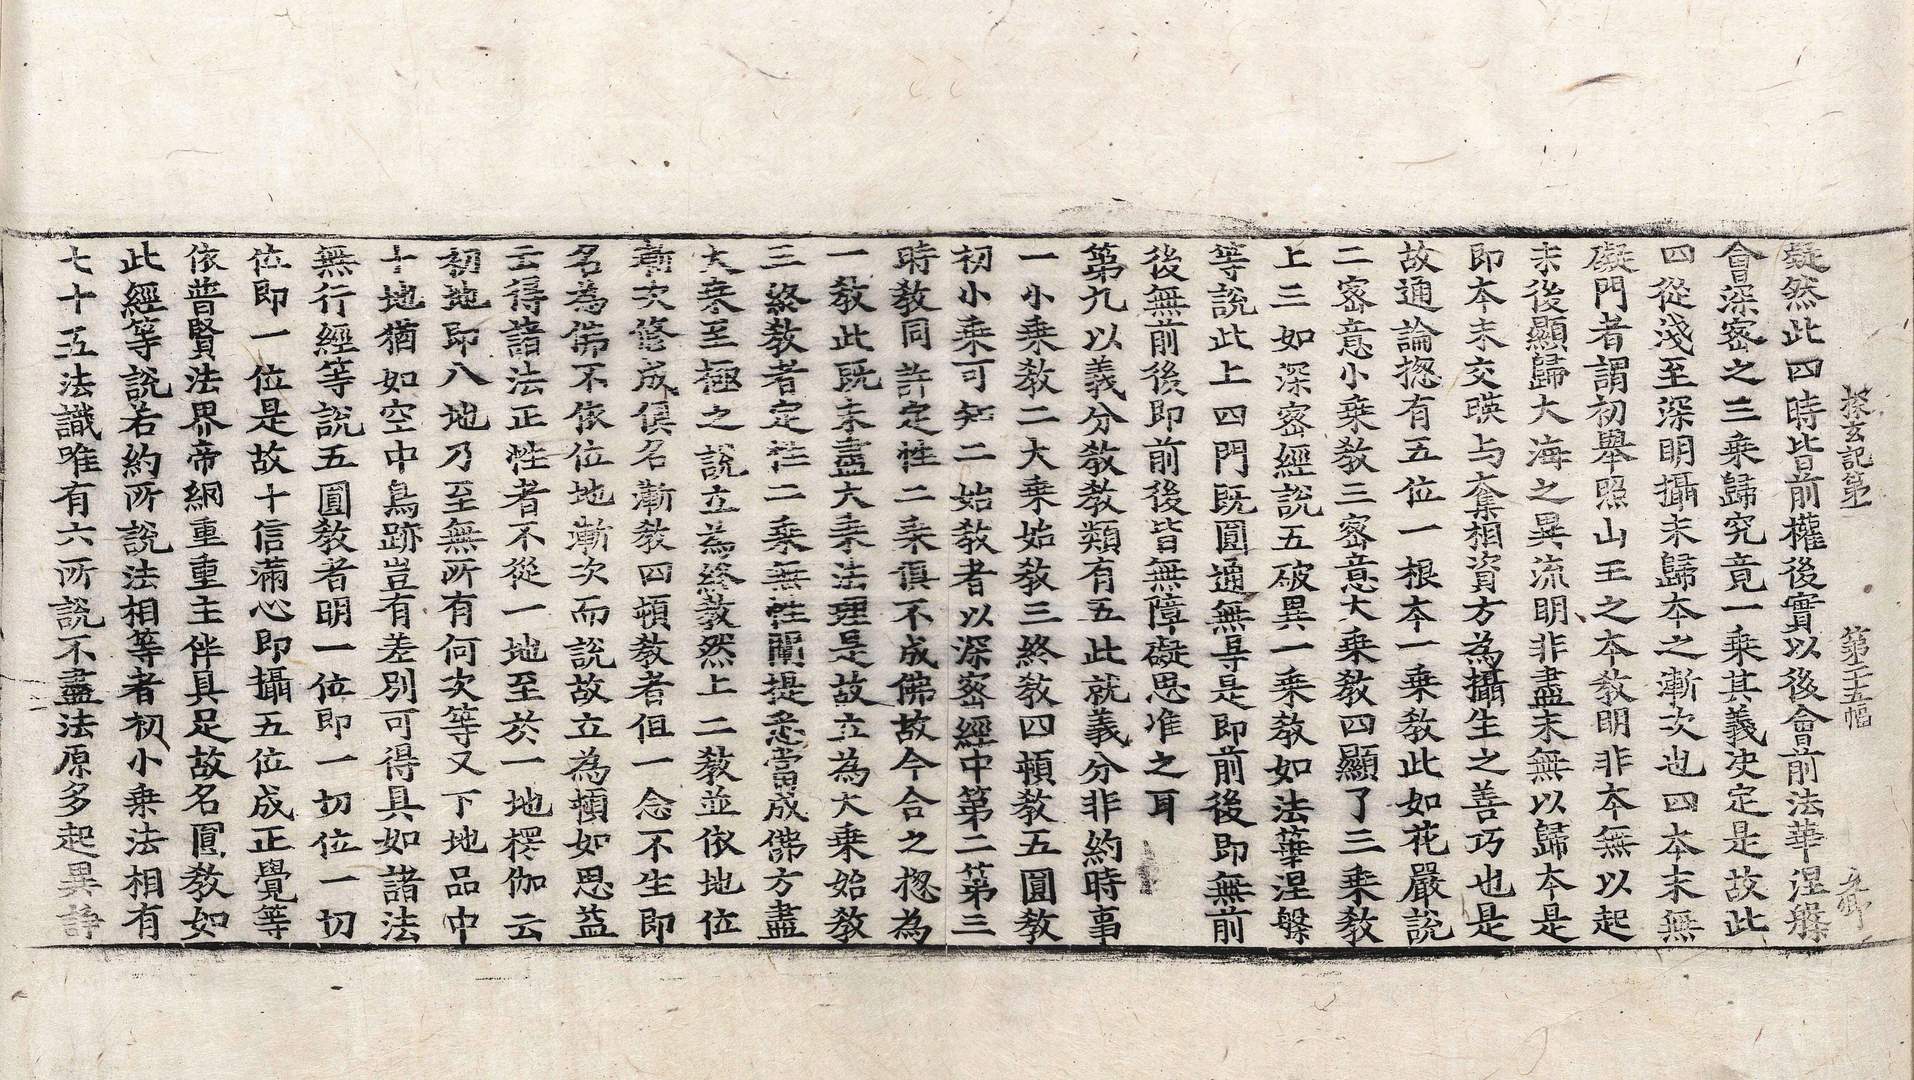 探玄記第一 第二十五幅
疑然此四時皆前權後實以後會前法華涅槃
會深密之三乗歸究竟一乗其義决定是故此
四從淺至深明攝末歸夲之漸次也四夲末無
礙門者謂初舉照山王之夲教明非夲無以起
末後顯歸大海之異流明非盡末無以歸夲是
即夲末交暎与奪相資方為攝生之善巧也是
故通論揔有五位一根夲一乗教此如花嚴說
二密意小乗教三密意大乗教四顯了三乗教
上三如深密經說五破異一乗教如法華涅槃
等說此上四門既圓通無㝵是即前後即無前
後無前後即前後皆無障礙思准之耳
第九以義分教教類有五此就義分非約時事
一小乗教二大乗始教三終教四頓教五圓教
初小乗可知二始教者以深密經中第二第三
時教同許定性二乗俱不成佛故今合之揔為
一教此既未盡大乗法理是故立為大乗始教
三終教者定性二乗無性闡提悉當成佛方盡
大乗至極之說立為終教然上二教並依地位
漸次修成俱名漸教四頓教者但一念不生即
名為佛不依位地漸次而說故立為頓如思益
云得諸法正性者不從一地至於一地楞伽云
初地即八地乃至無所有何次等又下地品中
十地猶如空中鳥跡豈有差別可得具如諸法
無行經等說五圓教者明一位即一切位一切
位即一位是故十信滿心即攝五位成正覺等
依普賢法界帝網重重主伴具足故名圓教如
此經等說若約所說法相等者初小乗法相有
七十五法識唯有六所說不盡法原多起異諍